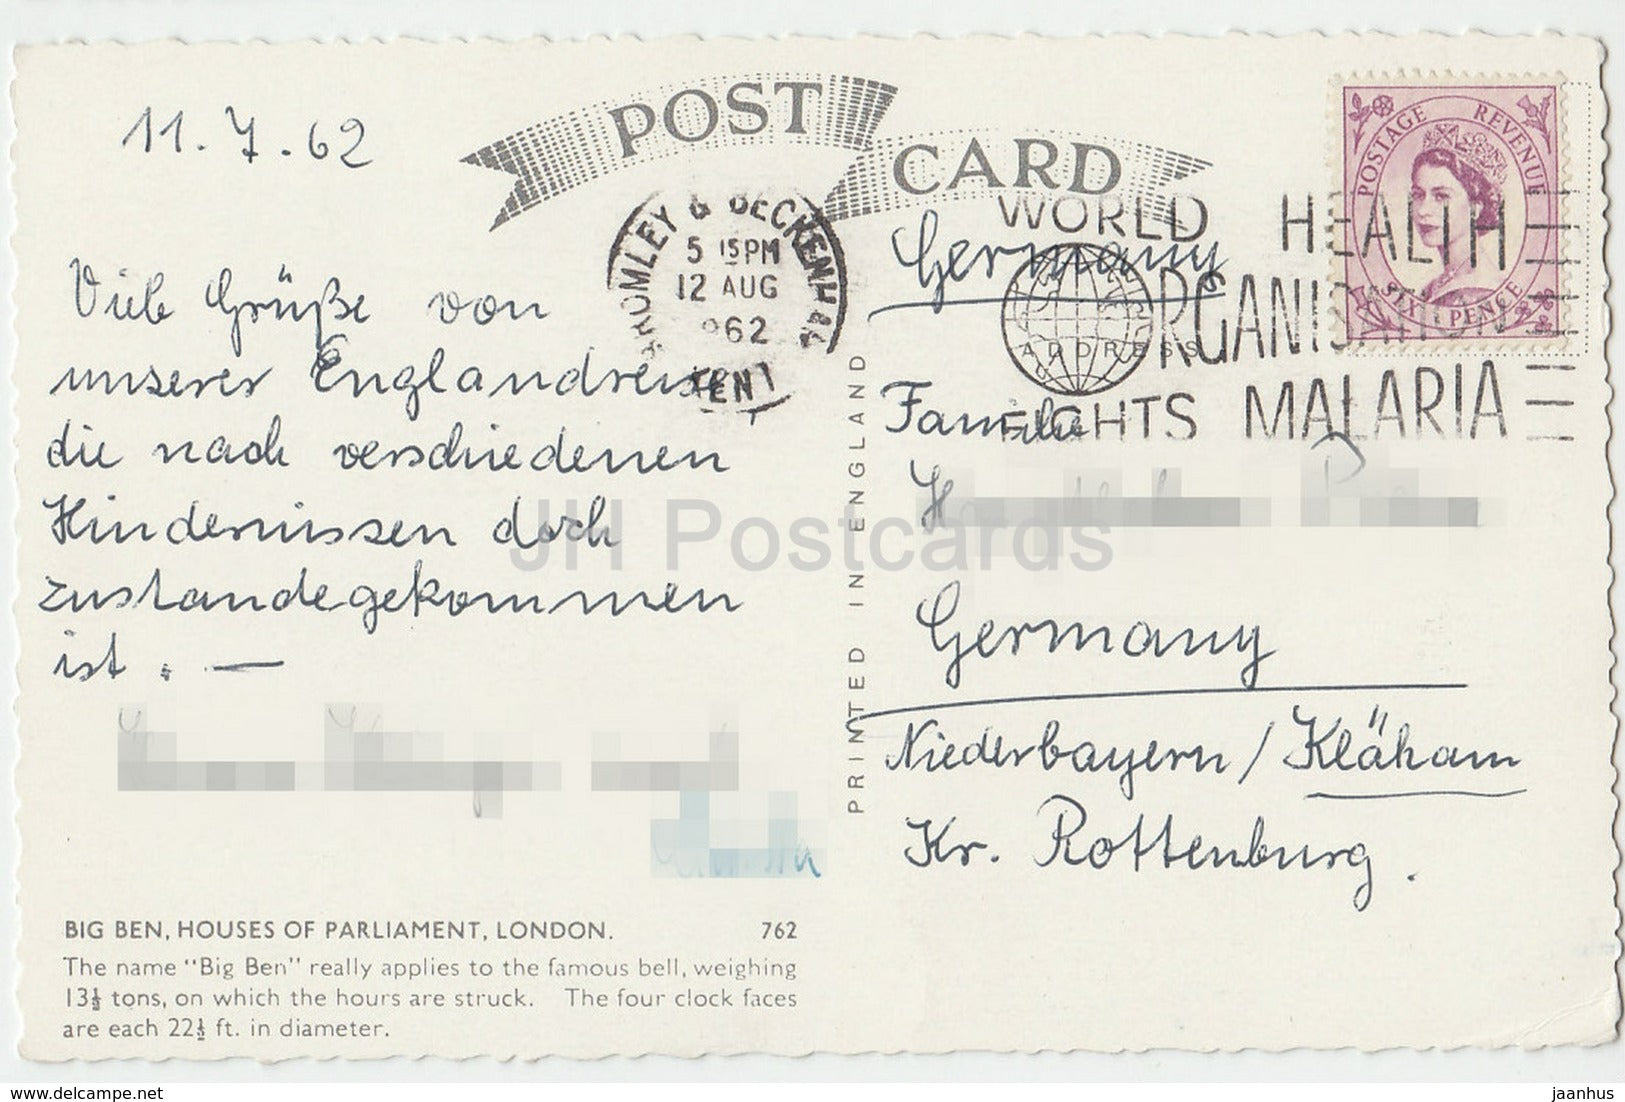 POST CARD
11.7.62
Viele Grüße von
unserer Englandreise
die nach verschiedenen
Hindernissen doch
zustandegekommen
ist. —
BROMLEY & BECKENHAM
5 15PM
12 AUG
1962
KENT
WORLD HEALTH
ORGANISATION
FIGHTS MALARIA
ADDRESS
POSTAGE REVENUE
SIX PENCE
Germany
Familie
Germany
Niederbayern / Kläham
Kr. Rottenburg.
PRINTED IN ENGLAND
JH Postcards
BIG BEN, HOUSES OF PARLIAMENT, LONDON. 762
The name "Big Ben" really applies to the famous bell, weighing
13½ tons, on which the hours are struck. The four clock faces
are each 22½ ft. in diameter.
www.delcampe.net
jaanhus